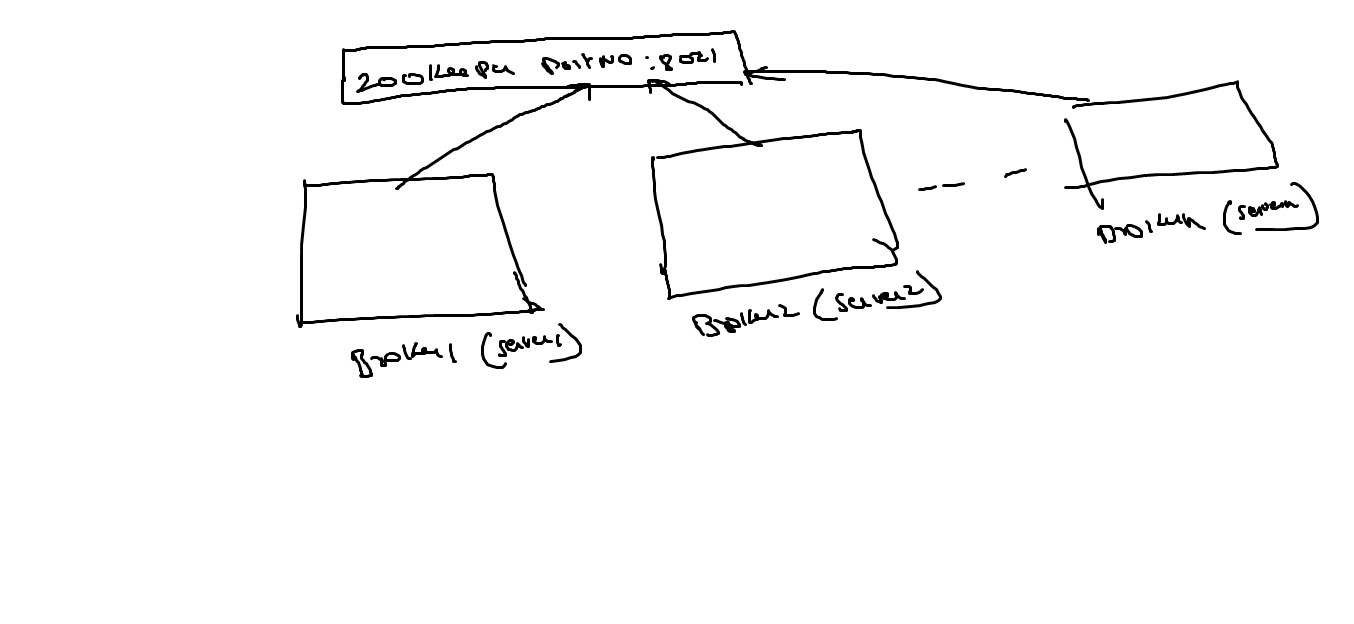 Zookeeper Port NO : 8021
Broker1 (server1)
Broker2 (server2)
Brokern (servern)